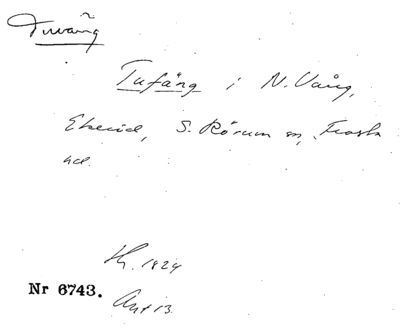 Tuväng
Tufäng i N. Vång,
Ekerïd, S. Rörum sn, Frosta
hd.
Lh. 1824
Nr 6743. Akt 13.